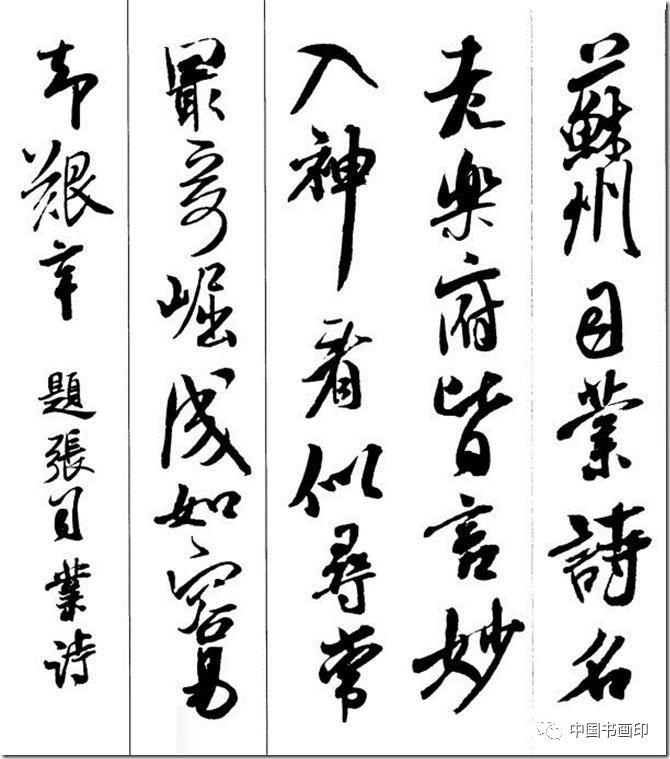 蘇州司業詩名
老樂府皆言妙
入神看似尋常
最奇崛成如容易
却艱辛 題張司業诗
中国书画印